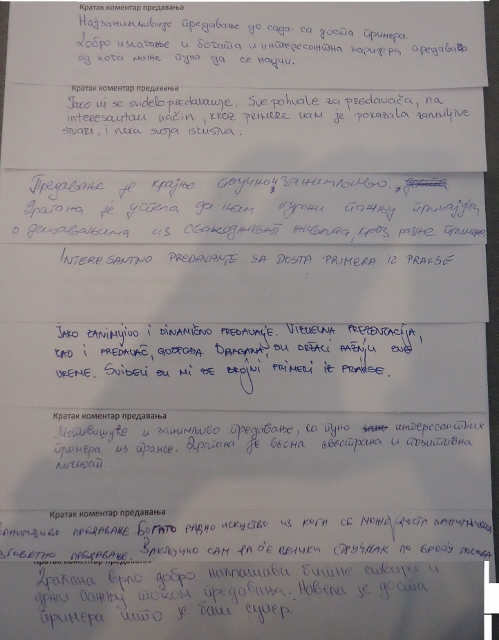 Кратак коментар предавања
Најзанимљивије предавање до сада са доста примера.
Добро излагање и богата и интересантна каријера предавача
од кога може пуно да се научи.
Кратак коментар предавања
Jako mi se svidelo predavanje. Sve pohvale za predavača, na
interesantan način, kroz primere nam je pokazala zanimljive
stvari, i neka svoja iskustva.
Предавање је крајње стручно, занимљиво.
Драгана је успела да нам одржи пажњу причајући
о дешавањима из свакодневног живота, кроз разне примере
INTERESANTNO PREDAVANJE SA DOSTA PRIMERA IZ PRAKSE
JAKO ZANIMLJIVO I DINAMIČNO PREDAVANJE. VIZUELNA PREZENTACIJA,
KAO I PREDAVAČ, GOSPOĐA DRAGANA, SU DRŽALI PAŽNJU SVE
VREME. SVIDELI SU MI SE BROJNI PRIMERI IZ PRAKSE.
Кратак коментар предавања
и занимљиво предавање, са пуно интересантних
примера из праксе. Драгана је веома свестрана и позитивна
личност.
Кратак коментар предавања
ЗАНИМЉИВО ПРЕДАВАЊЕ БОГАТО РАДНО ИСКУСТВО ИЗ КОГА СЕ МОЖЕ ДОСТА
ПРЕДАВАЊЕ. ЗАКЉУЧИО САМ ДА ЈЕ ВЕЛИКИ СТРУЧЊАК ПО БРОЈУ
Кратак коментар предавања
Драгана врло добро наглашава битне ствари и
држи пажњу током предавања. Навела је доста
примера што је баш супер.